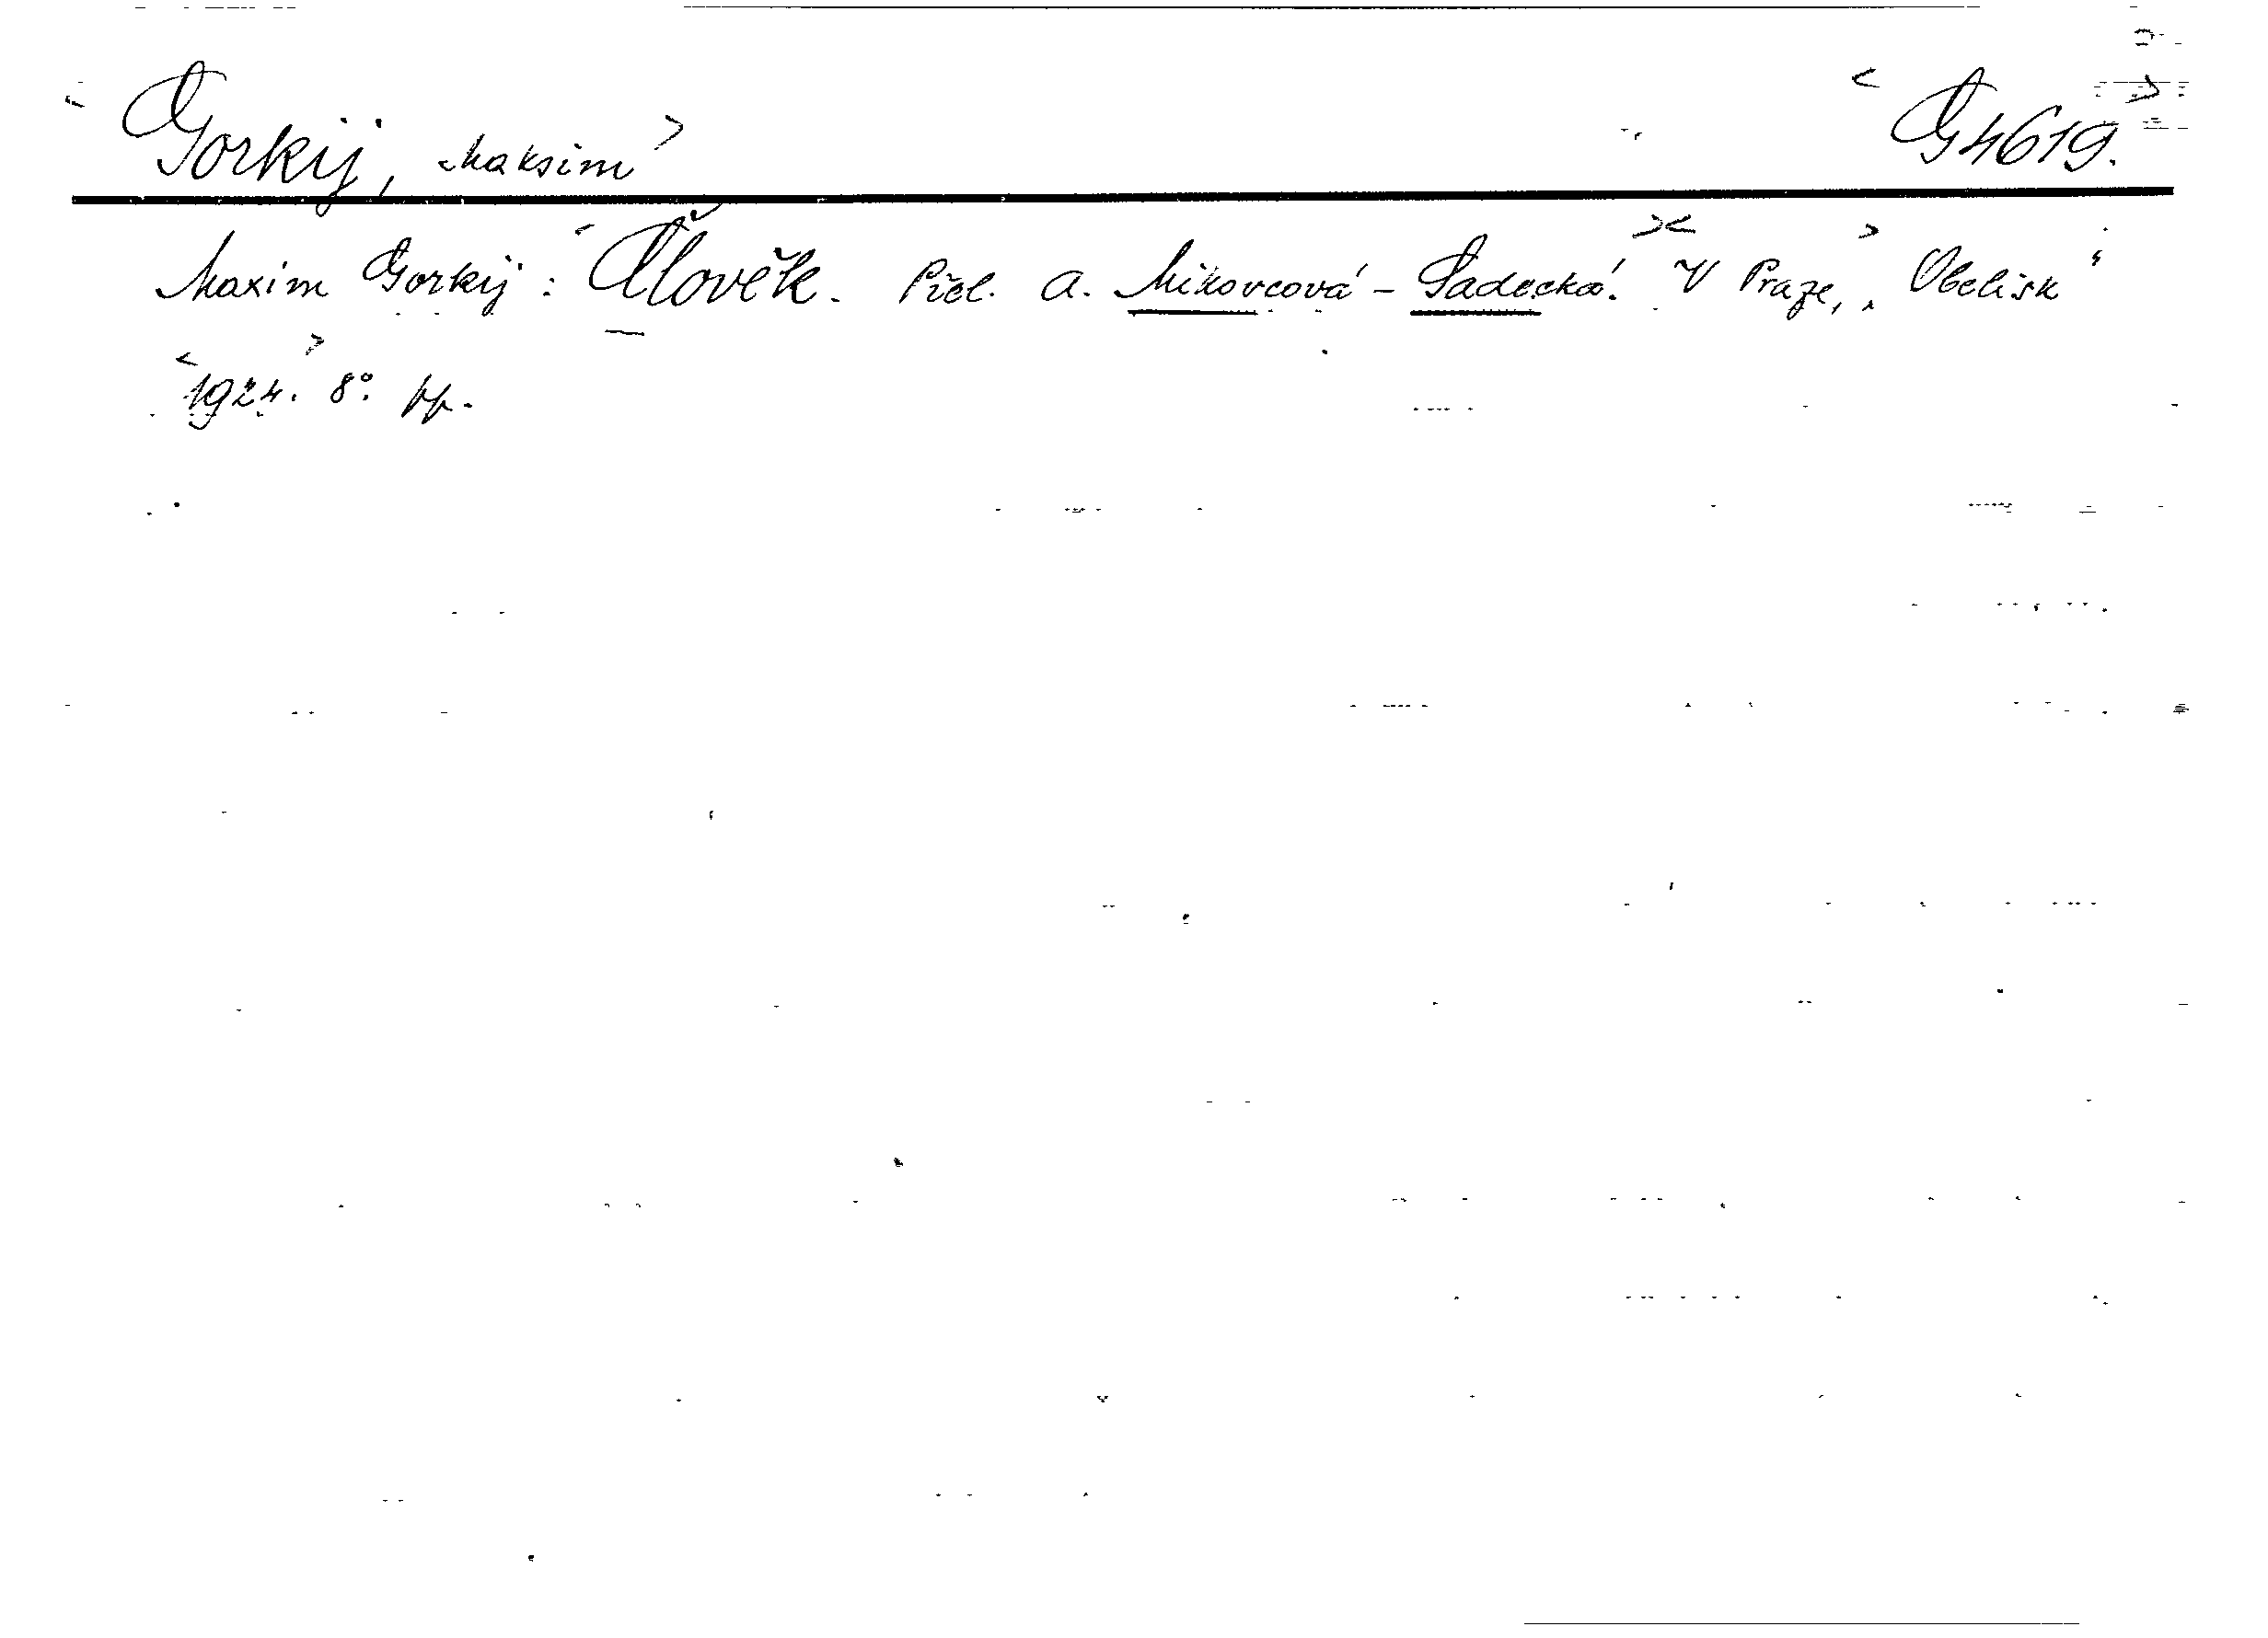 Gorkij, Maksim G 4619.
Maxim Gorkij: Člověk. Přel. A. Mikovcová-Sadecká. V Praze, „Obelisk“
1924. 8°.